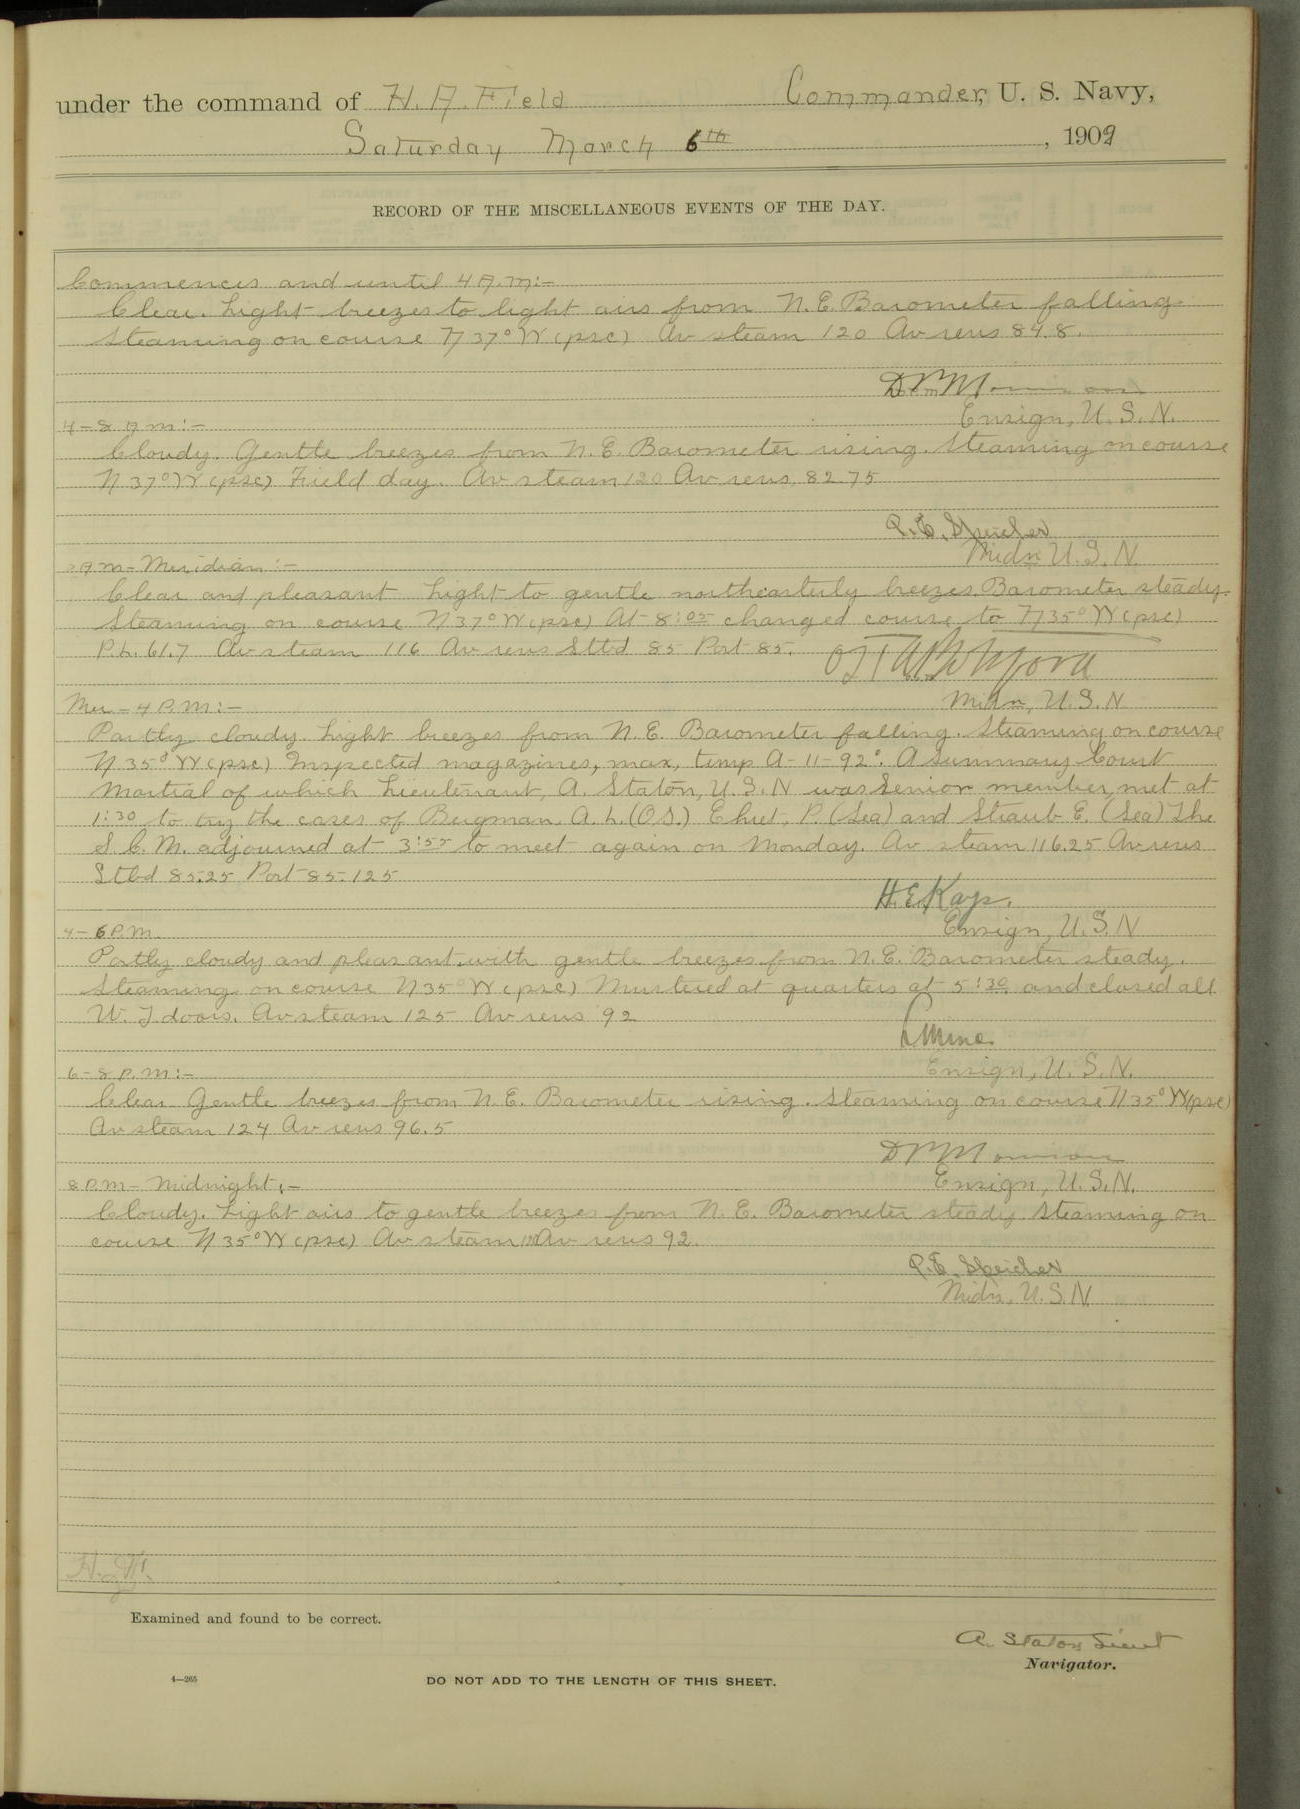 under the command of H. A. Field Commander, U. S. Navy,
Saturday March 6th, 1909
RECORD OF THE MISCELLANEOUS EVENTS OF THE DAY.
Commences and until 4 A.M:-
Clear. Light breezes to light airs from N.E. Barometer falling.
Steaming on course N 37° W (psc) Av steam 120 Av revs 84.8.
Ensign, U. S. N.
4-8 A.M:-
Cloudy. Gentle breezes from N.E. Barometer rising. Steaming on course
N 37° W (psc) Field day. Av steam 120 Av revs. 82.75
P.E. Speicher
Midn U.S.N.
AM-Meridian:-
Clear and pleasant Light to gentle northeasterly breezes. Barometer steady.
Steaming on course N 37° W (psc) At 8:05 changed course to N 35° W (psc)
P.L. 61.7 Av steam 116 Av revs Stbd 85 Port 85.
Midn, U.S.N
Mer-4 P.M:-
Partly cloudy. Light breezes from N.E. Barometer falling. Steaming on course
N 35° W (psc) Inspected magazines, max, temp A-11-92°. A Summary Court
Martial of which Lieutenant, A. Staton, U.S.N was Senior member, met at
1:30 to try the cases of Bergman, A. L. (O.S.) Ehret, P. (Sea) and Straub E. (Sea) The
S.C.M. adjourned at 3:55 to meet again on Monday. Av steam 116.25 Av revs
Stbd 85.25 Port 85.125
H.E. Kays.
Ensign, U.S.N
4-6 P.M.
Partly cloudy and pleasant with gentle breezes from N.E. Barometer steady.
Steaming on course N 35° W (psc) Mustered at quarters at 5:30 and closed all
W. T doors. Av steam 125 Av revs 92
Ensign, U. S. N.
6-8 P.M:-
Clear Gentle breezes from N.E. Barometer rising. Steaming on course N 35° W (psc)
Av steam 124 Av revs 96.5
Ensign, U.S.N.
8 P.M-Midnight:-
Cloudy. Light airs to gentle breezes from N.E. Barometer steady Steaming on
course N 35° W (psc) Av steam Av revs 92.
P.E. Speicher
Midn, U.S.N.
Examined and found to be correct.
A. Staton Lieut
Navigator.
4—265
DO NOT ADD TO THE LENGTH OF THIS SHEET.